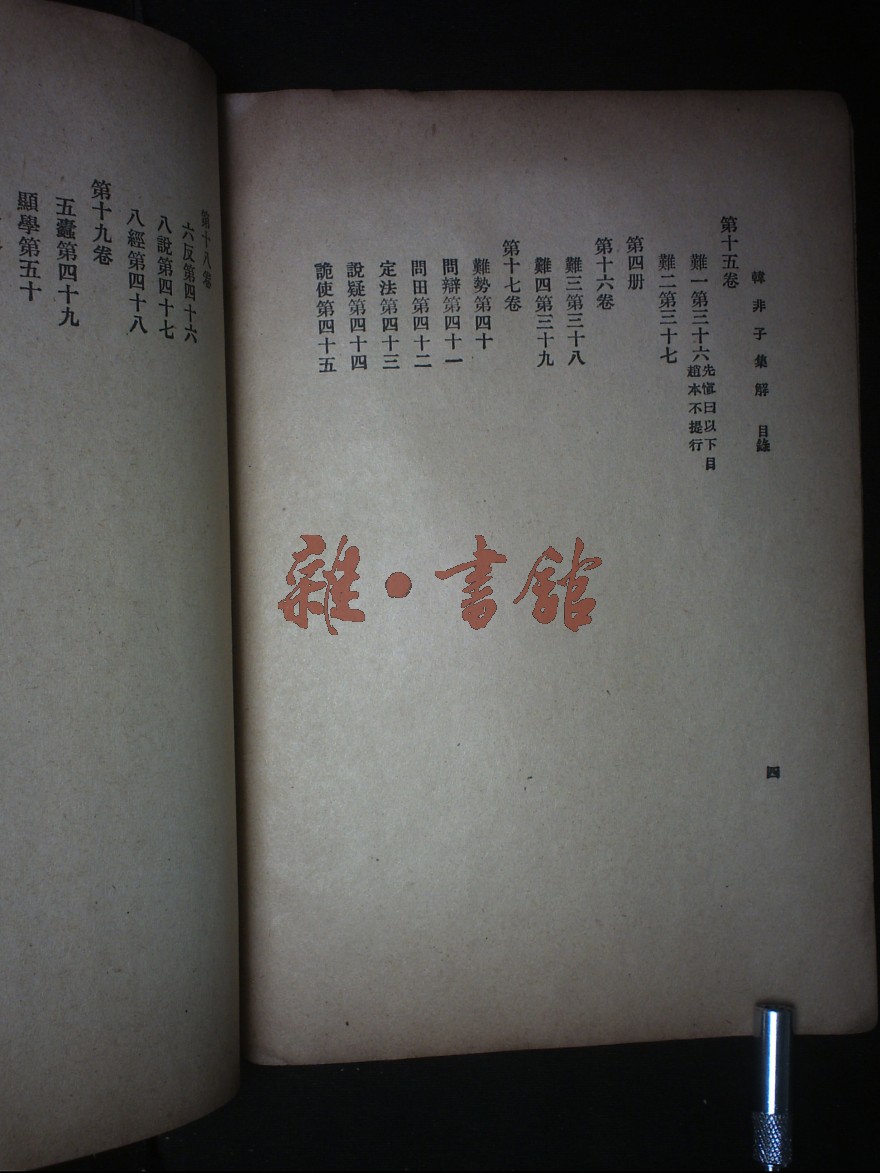 韓非子集解　目錄
四
第十五卷
難一第三十六先愼曰以下目趙本不提行
難二第三十七
第四册
第十六卷
難三第三十八
難四第三十九
第十七卷
難勢第四十
問辯第四十一
問田第四十二
定法第四十三
說疑第四十四
詭使第四十五
第十八卷
六反第四十六
八說第四十七
八經第四十八
第十九卷
五蠹第四十九
顯學第五十
雜·書館